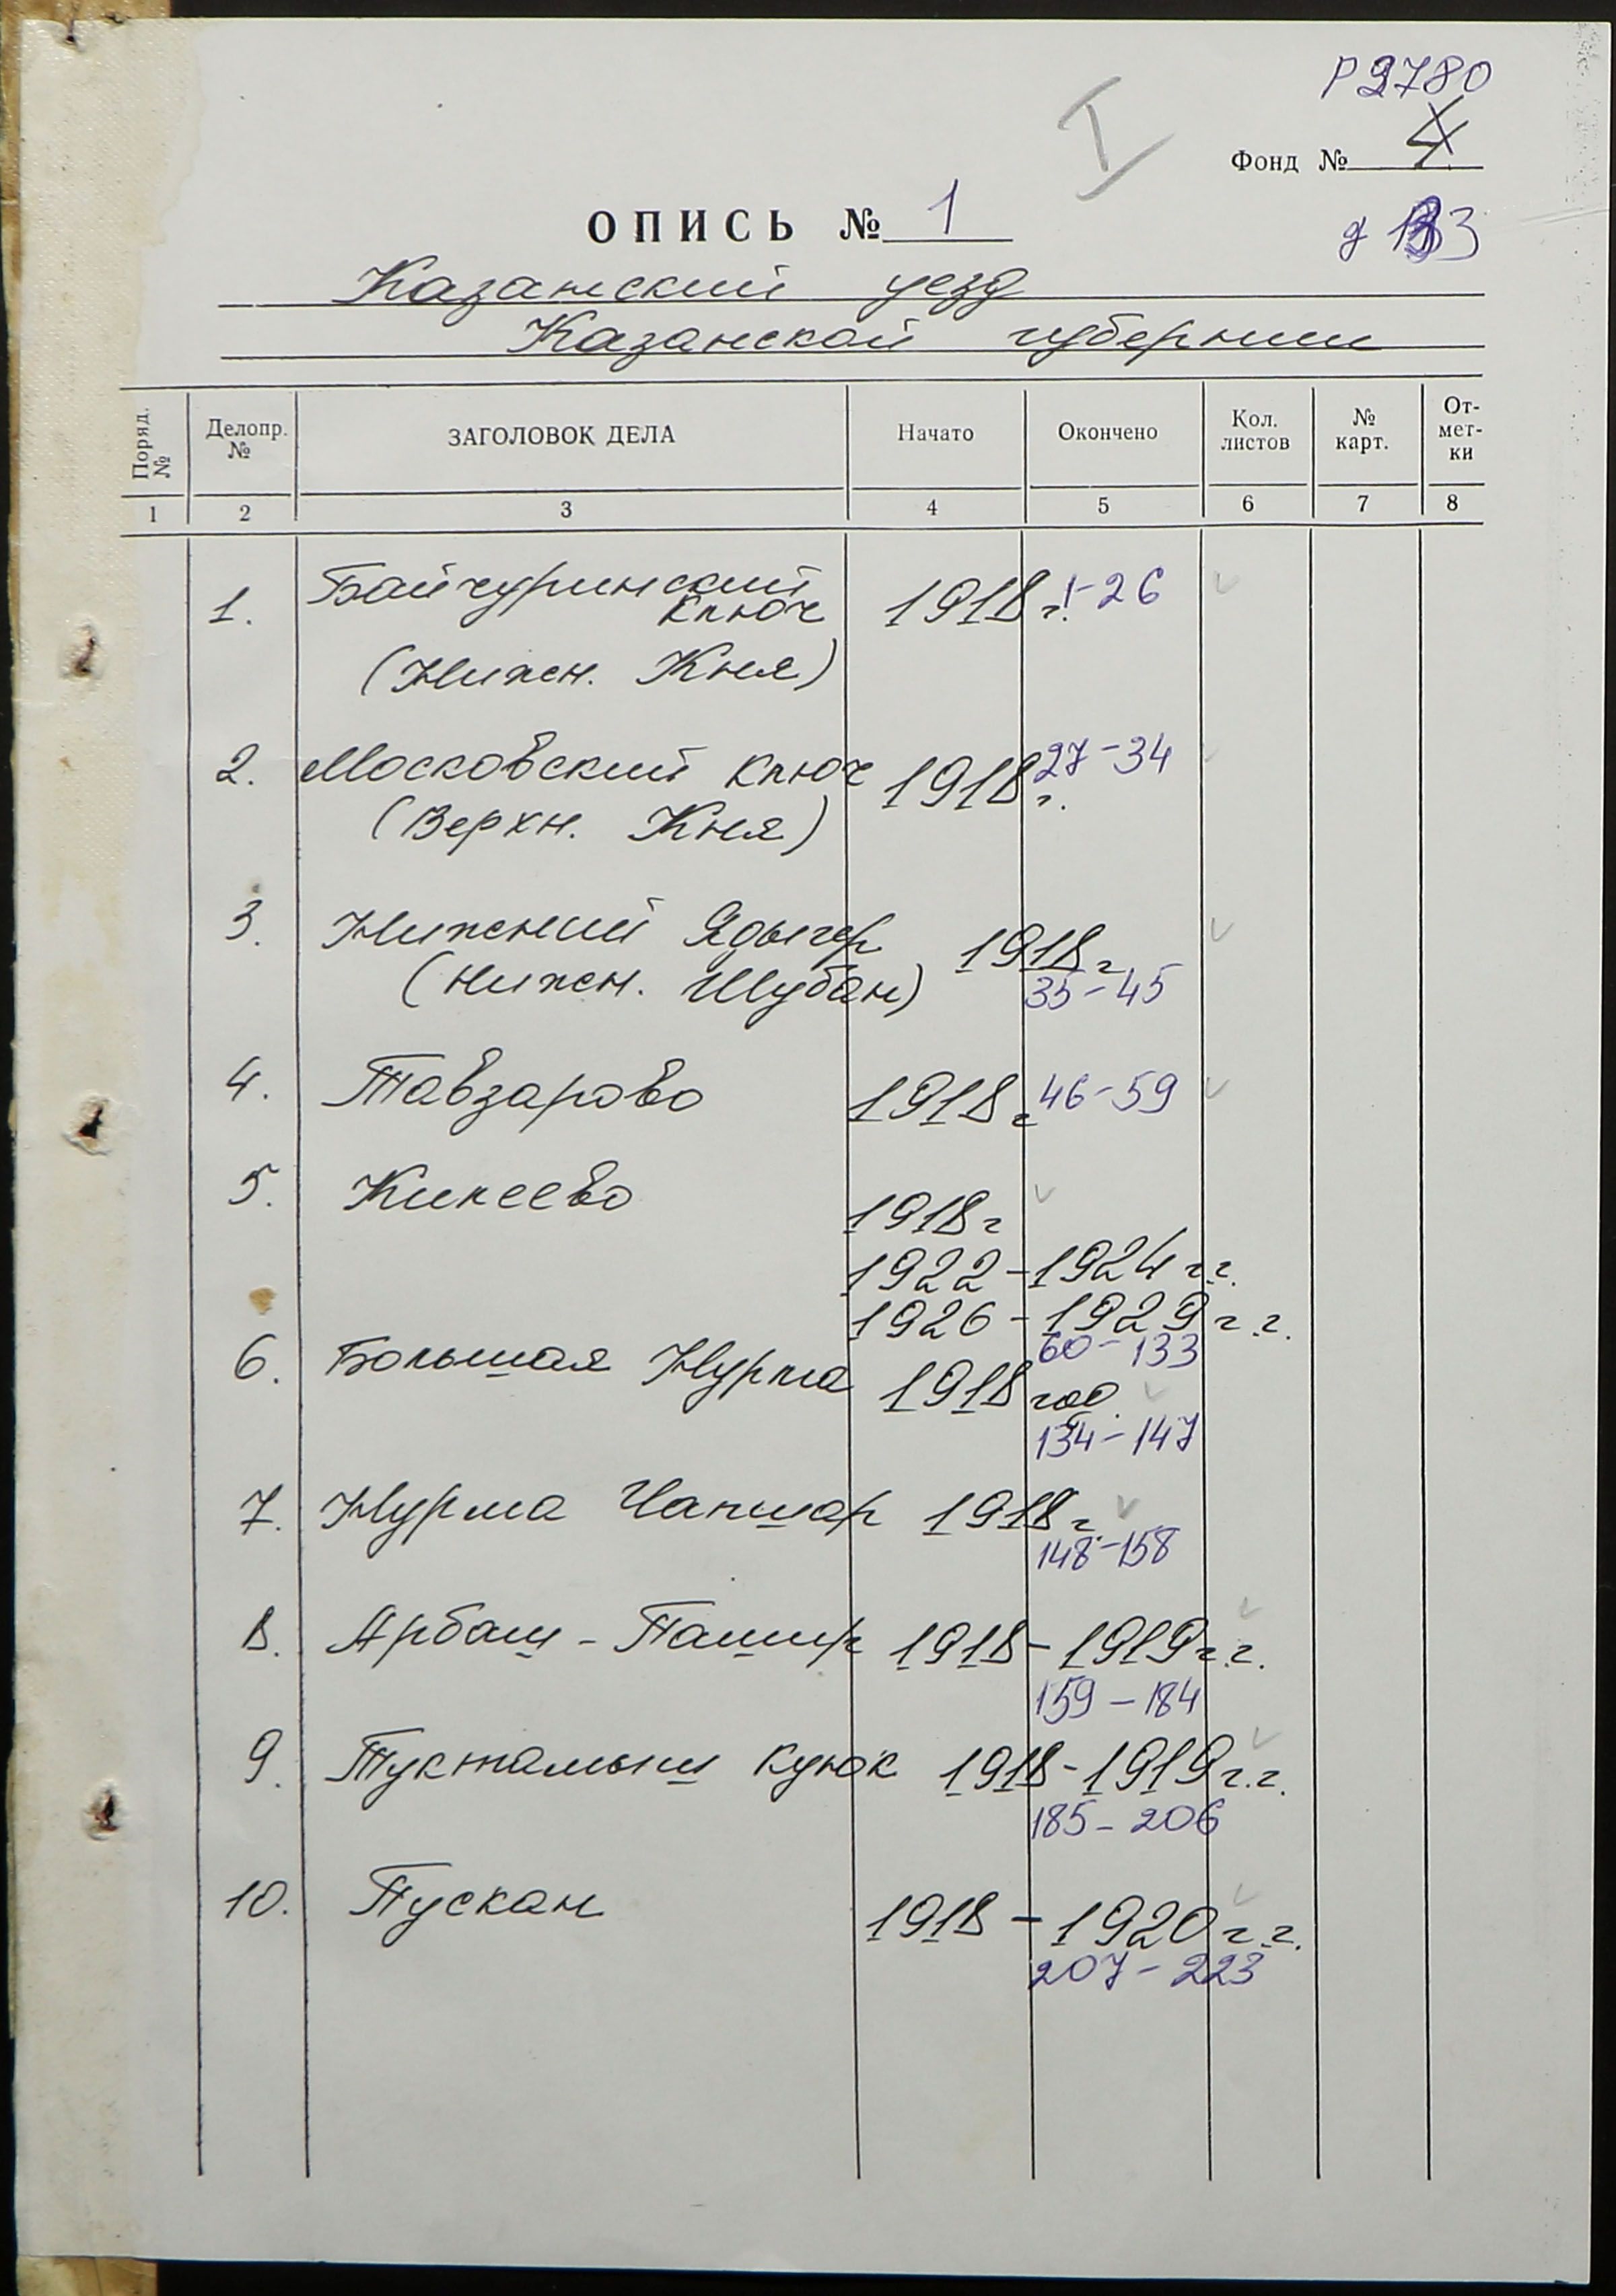 Р 2780
I
Фонд № 4
ОПИСЬ № 1
д 133
Казанский уезд
Казанской губернии
Поряд. № Делопр. № ЗАГОЛОВОК ДЕЛА Начато Окончено Кол. листов № карт. От-мет-ки
1 2 3 4 5 6 7 8
1. Байчуринский 1918 г. 1-26
ключ
(Нижн. Кня)
2. Московский ключ 1918 г. 27-34
(Верхн. Кня)
3. Нижний Ядыгер 1918 г
(нижн. Шубан) 35-45
4. Тавзарово 1918 г 46-59
5. Кикеево 1918 г
1922-1924 г.г.
1926-1929 г.г.
60-133
6. Большая Нурма 1918 год.
134-147
7. Нурма Чапшар 1918 г.
148-158
8. Арбаш-Пашир 1918-1919 г.г.
159-184
9. Туктамыш куюк 1918-1919 г.г.
185-206
10. Пускан 1918-1920 г.г.
207-223